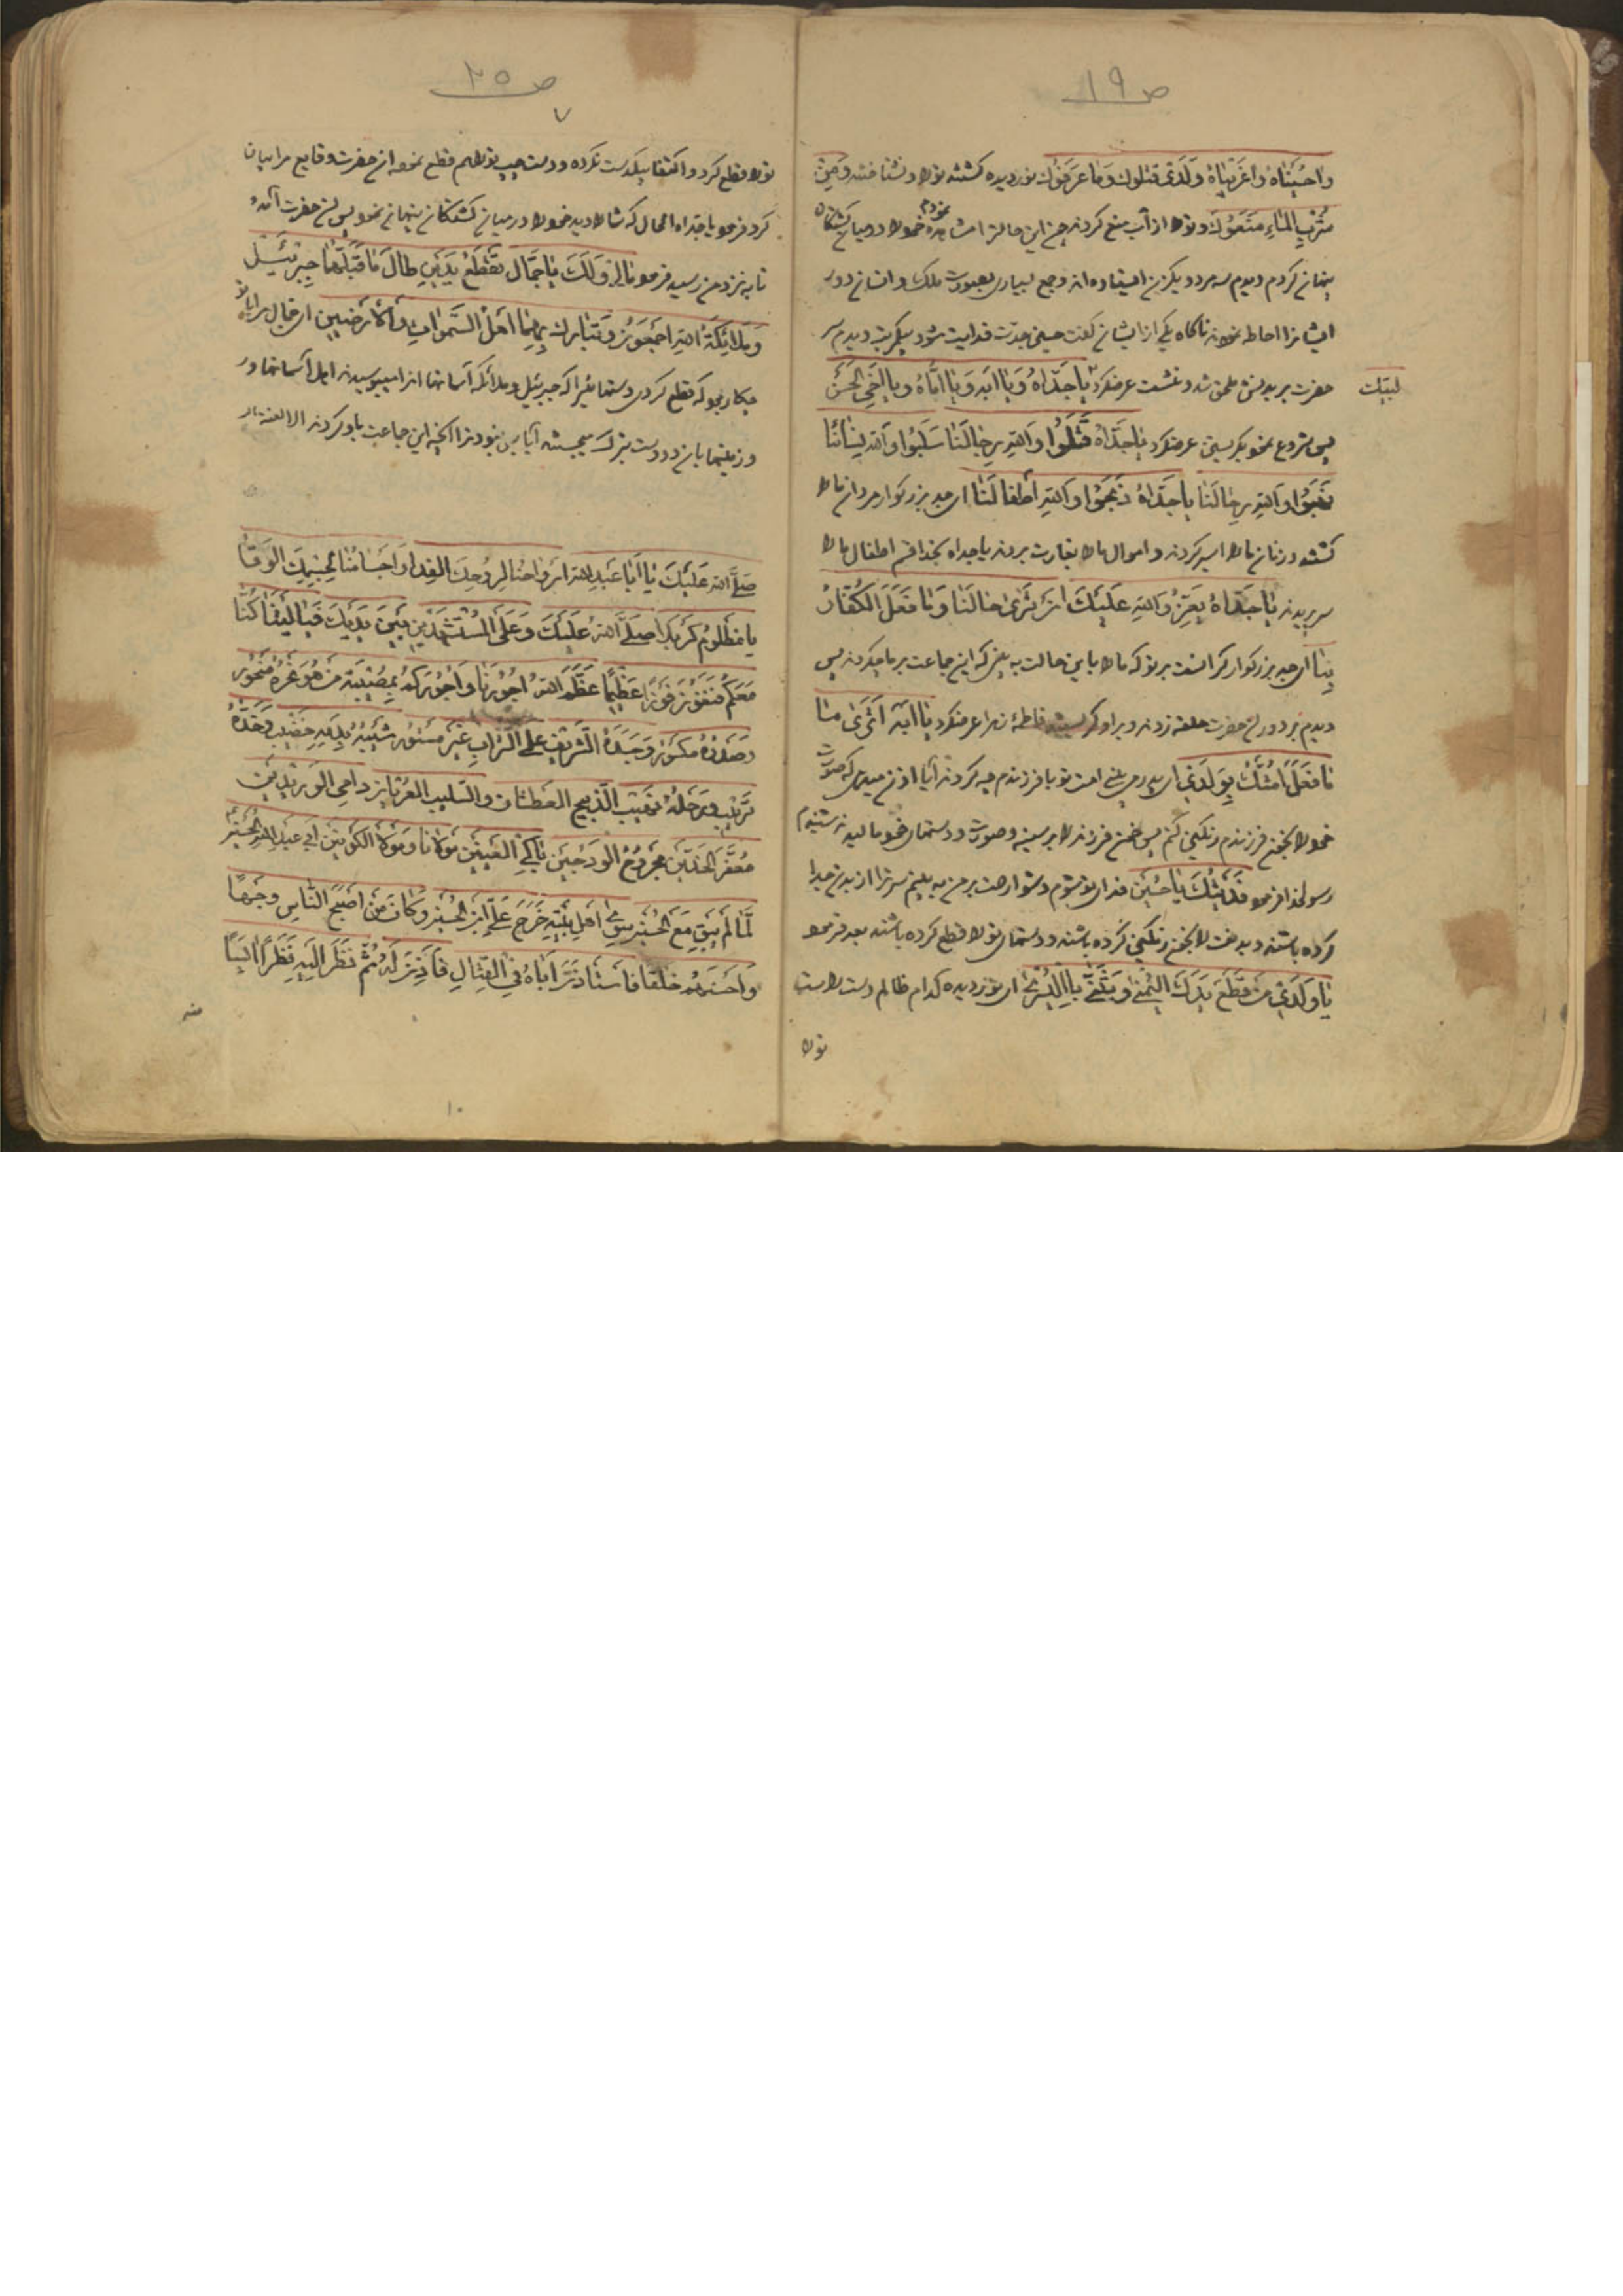 ص ١٩
واحبیباه واغریباه ولدی قتلوك وما عرفوك نور دیده کشتند تو را و نشناختند ومن
شرب الماء منعوك و تو را از آب منع کردند چون این حالت را مشاهده نمودم خود را در میان کشتکان
پنهان کردم و دیدم سه مرد و یکزن ایستاده اند و جمع بسیاری بصورت ملك و انسان دور
ایشانرا احاطه نموده ناکاه یکی از ایشان کفت حسین جدت فدایت شود بیکمرتبه دیدم سر
حضرت ببدنش ملحق شد و نشست عرضکرد یا جداه و یا ابه و یا اماه و یا اخی الحسن
لبیك
پس شروع نمود بکریستن عرضکرد یا جداه قتلوا والله رجالنا سلبوا والله نسائنا
نهبوا والله رحالنا یا جداه ذبحوا والله اطفالنا ای جد بزرکوار مردان ما را
کشتند و زنان ما را اسیر کردند و اموال ما را بغارت بردند یا جداه بخدا قسم اطفال ما را
سر بریدند یا جداه یعز والله علیك ان تری حالنا وما فعل الكفار
بنا ای جد بزرکوار کران است بر تو که ما را باین حالت به بینی که این جماعت بر ما چکردند پس
دیدم بر دور آن حضرت حلقه زدند و بر او کریستند فاطمهٔ زهرا عرضکرد یا ابه اتری ما
ما فعل امتك بولدی ای پدر می بینی امت تو با فرزندم چه کردند آیا اذن میدهی که صورت
خود را بخون فرزندم رنکین کنم پس خون فرزند را بر سینه و صورت و دستهای خود مالید شنیدم
رسولخدا فرمود فدیتك یا حسین فدای تو شوم دشوار است بر من به بینم سر ترا از بدن جدا
کرده باشند و بدنت را بخون رنکین کرده باشند و دستهای تو را قطع کرده باشند بعد فرمود
یا ولدی من قطع یدك الیمنی و یثنی بالیسری ای نور دیده کدام ظالم دست راست
تو را
ص ٢٥
٧
تو را قطع کرد و اکتفا بیکدست نکرده و دست چپ تو را هم قطع نمود آن حضرت وقایع را بیان
کرد فرمود یا جداه الحال که شما را دید خود را در میان کشتکان پنهان نمود پس آن حضرت آمد
تا به نزد من رسید فرمود مالی ولك یا جمال تقطع یدین طال ما قبلهما جبرئیل
وملائكة الله اجمعون وتبارك بهما اهل السموات والارضین ای جمال مرا با تو
چکار بود که قطع کردی دستهائیرا که جبرئیل و ملائکه آسمانها انرا میبوسیدند اهل آسمانها و
و زمینها بان دو دست تبرك میجستند آیا بس نبود ترا آنچه این جماعت با او کردند الا لعنة الله
صلی الله علیك یا ابا عبد الله ارواحنا لروحك الفدا و اجسامنا لجسمك الوقا
یا مظلوم کربلا صلی الله علیك وعلی المستشهدین بین یدیك فیا لیتنا کنا
معكم فنفوز فوزا عظیما عظم الله اجورنا و اجوركم بمصیبة من هو نحره منحور
وصدره مكسور وجسده الشریف علی التراب غیر مستور شیبه بدمه خضیب وخده
تریب ورحله نهیب الذبیح العطشان والسلیب العریان دامی الوریدین
معفر الخدین مجروح الودجین باكی العینین مولانا ومولا الكونین ابی عبد الله الحسین
لما لم یبق مع الحسین سوی اهل بیته خرج علی ابن الحسین وكان من اصبح الناس وجها
واحسنهم خلقا فاستاذن اباه فی القتال فاذن له ثم نظر الیه نظرا آیسا
منه
١٠